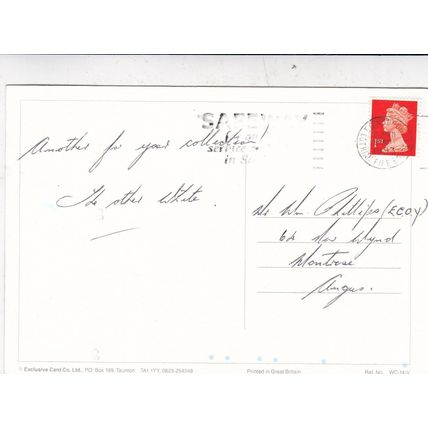 SAFEWAY
Service
in S
1ST
Another for your collection!
The other White.
Mr Wm Phillips (ECOY)
64 New Wynd
Montrose
Angus.
© Exclusive Card Co. Ltd., PO. Box 189, Taunton TA1 1YY, 0823-254248
Printed in Great Britain
Ref. No. WC-14-V